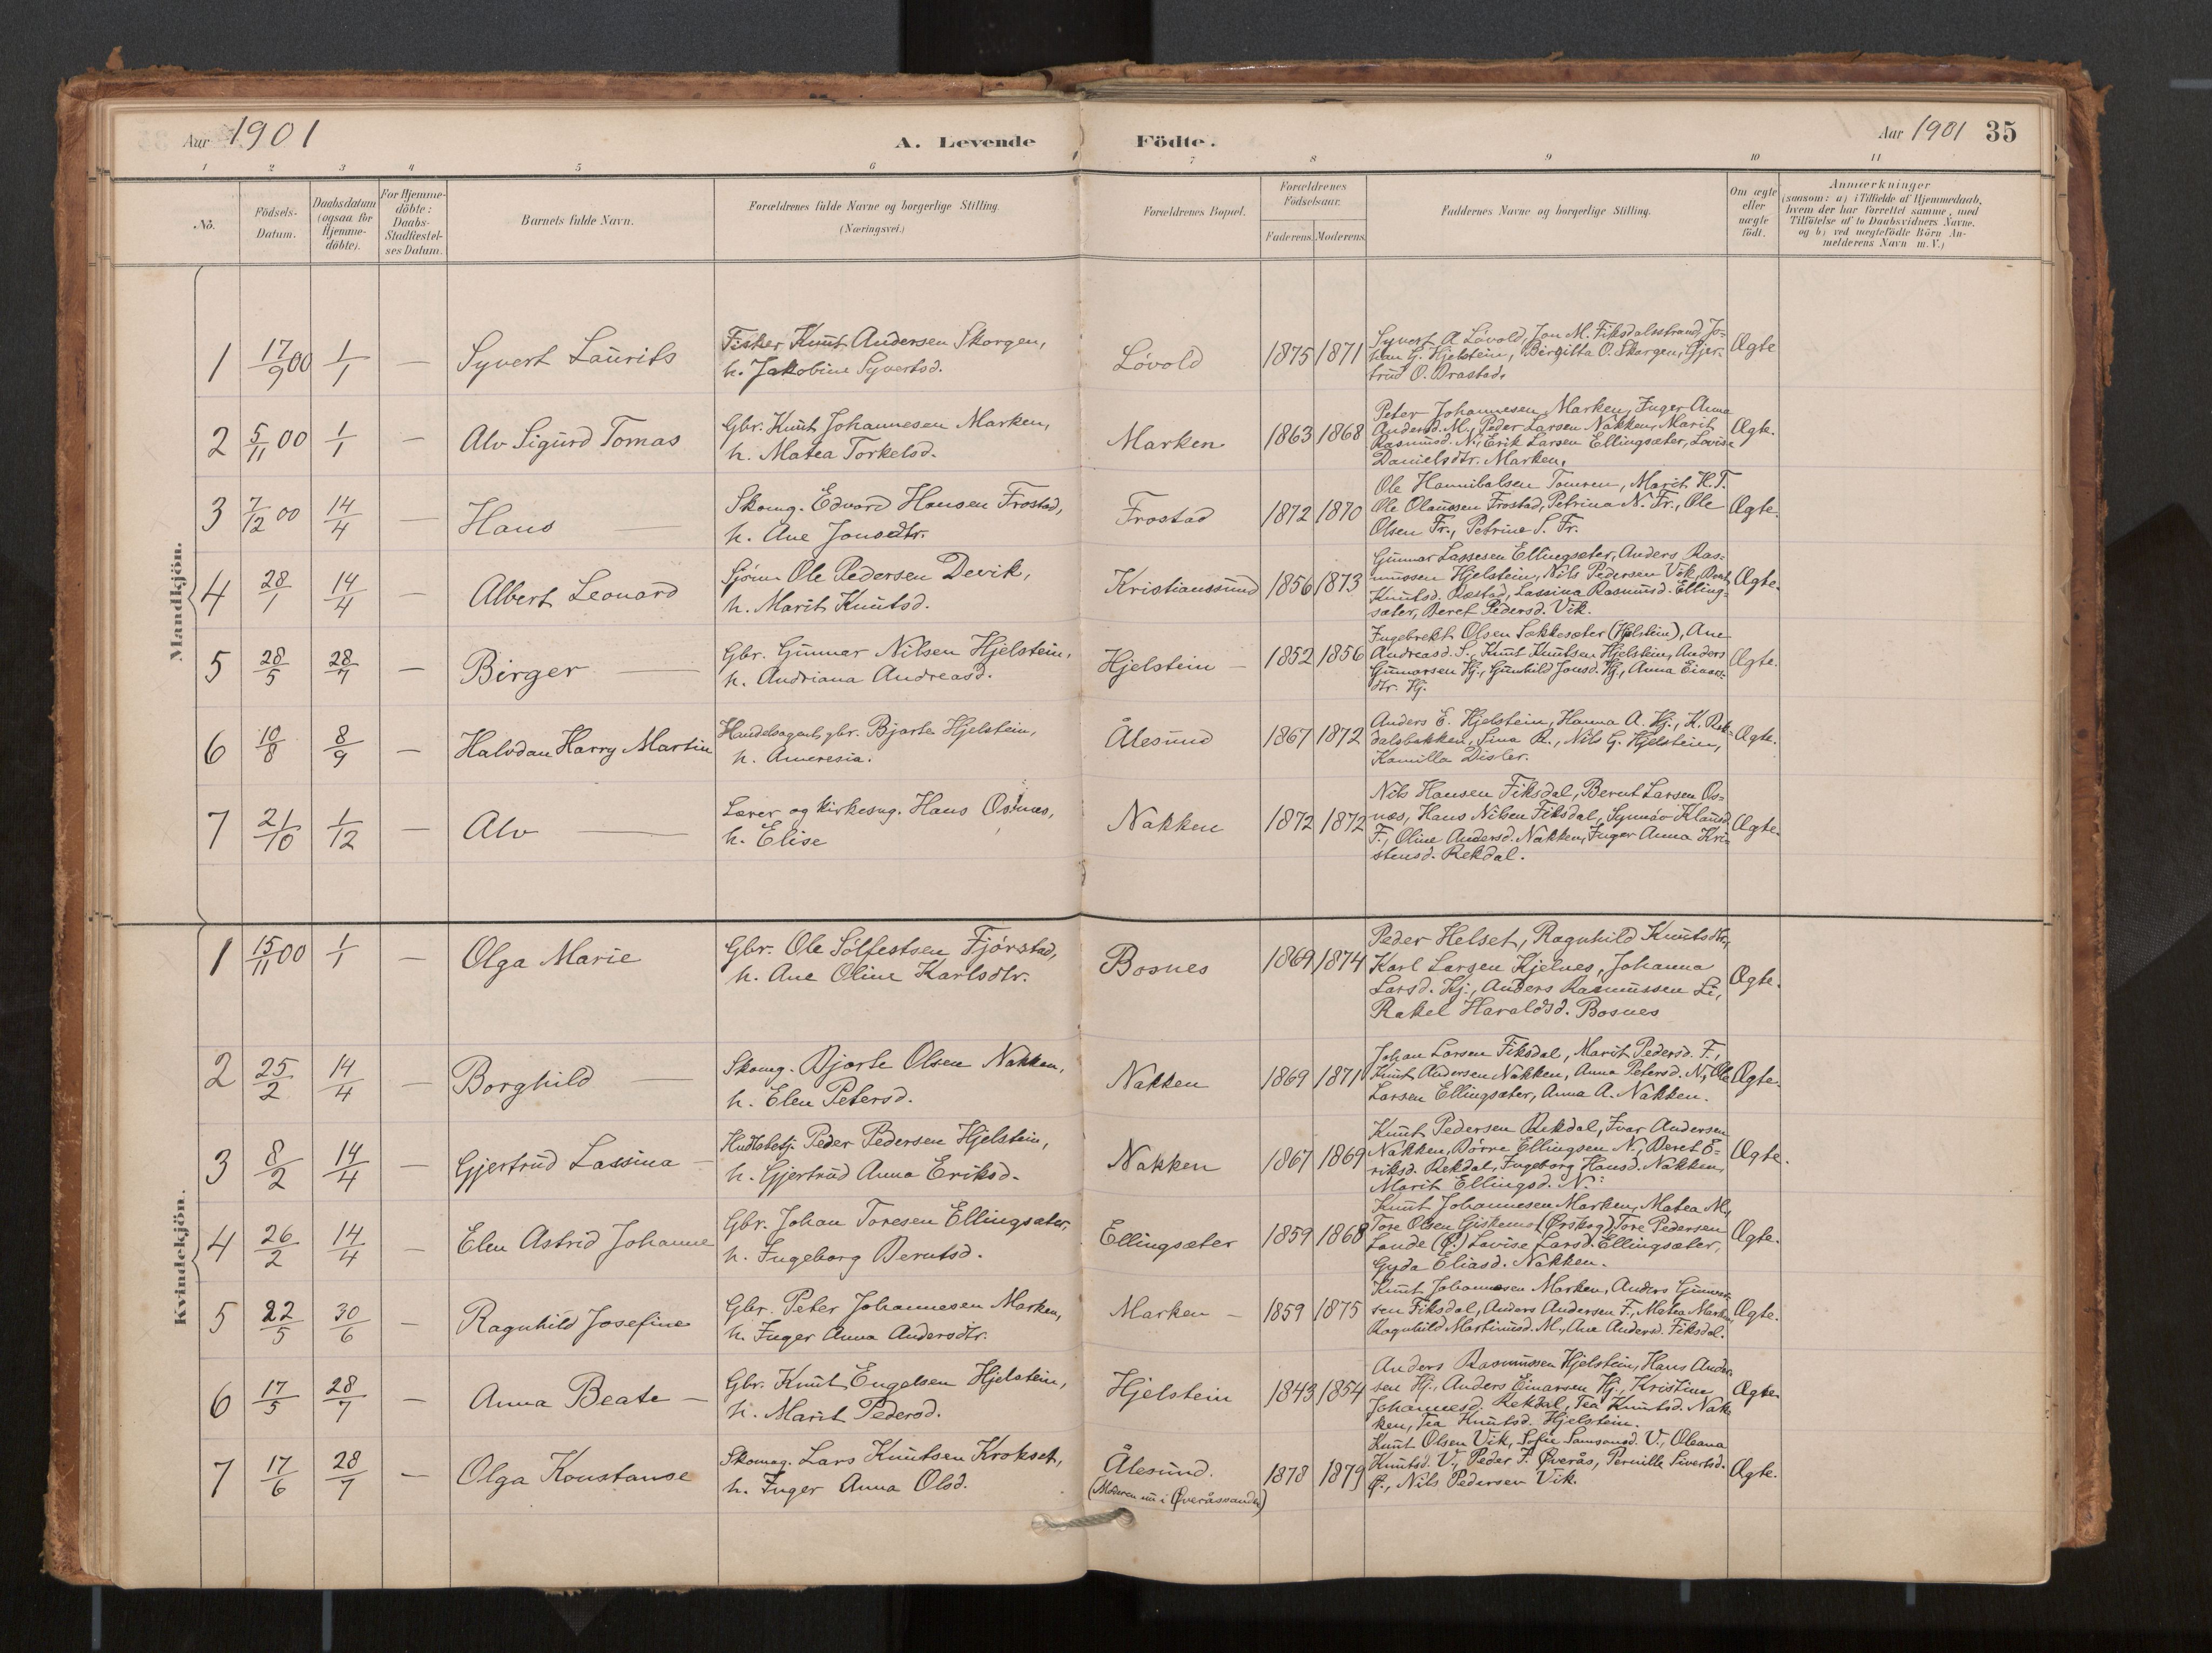 Aar 1901
A. Levende Födte.
Aar 1901 35
1 2 3 4 5 6 7 8 9 10 11
No. Födsels-Datum. Daabsdatum (ogsaa for Hjemmedöbte). For Hjemmedöbte: Daabs-Stadfæstelses Datum. Barnets fulde Navn. Forældrenes fulde Navne og borgerlige Stilling. (Næringsvei.) Forældrenes Bopæl. Forældrenes Födselsaar. Faderens. Moderens. Faddernes Navne og borgerlige Stilling. Om ægte eller uægte födt. Anmærkninger (saasom: a) i Tilfælde af Hjemmedaab, hvem der har forrettet samme, med Tilföielse af to Daabsvidners Navne. og b) ved uægtefödte Börn Anmelderens Navn m. V.)
Mandkjön.
1 17/9 00 1/1 — Syvert Laurits
Fisker Knut Andersen Skorgen,
h. Jakobine Syvertsd.
Lövold 1875 1871
Syvert A. Lövold, Jon M. Fiksdalsstrand, Jo-
han G. Hjelstein, Birgitta O. Skorgen, Gjer-
trud O. Brastad.
Ægte
2 5/11 00 1/1 — Alv Sigurd Tomas
Gbr. Knut Johannesen Marken,
h. Matea Torkelsd.
Marken 1863 1868
Peter Johannesen Marken, Inger Anna
Andersd. M., Peder Larsen Nakken, Marit
Rasmusd. N., Erik Larsen Ellingsæter, Lovise
Danielsdtr. Marken.
Ægte.
3 7/12 00 14/4 — Hans
Skomg. Edvard Hansen Frostad,
h. Ane Jonsdtr.
Frostad 1872 1870
Ole Hannibalsen Tomren, Marit H. T.
Ole Olaussen Frostad, Petrina N. Fr., Ole
Olsen Fr., Petrine S. Fr.
Ægte.
4 28/1 14/4 — Albert Leonard
Sjöm. Ole Pedersen Devik,
h. Marit Knutsd.
Kristianssund 1856 1873
Gunnar Lassesen Ellingsæter, Anders Ras-
mussen Hjelstein, Nils Pedersen Vik, Berit
Knutsd.Ræstad, Lassina Rasmusd. Elling-
sæter, Beret Pedersd. Vik.
Ægte.
5 28/5 28/7 — Birger
Gbr. Gunnar Nilsen Hjelstein,
h. Andriana Andreasd.
Hjelstein — 1852 1856
Ingebrekt Olsen Sekkesæter (Hjelstein), Ane
Andreasd. S., Knut Knutsen Hjelstein, Anders
Gunnarsen Hj., Gunhild Jonsd. Hj., Anna Einars-
dtr. Hj.
Ægte.
6 10/8 8/9 — Halvdan Harry Martin
Handelsagent, gbr. Bjarte Hjelstein,
h. Ameresia.
Ålesund 1867 1872
Anders E. Hjelstein, Hanna A. Hj., K. Rek-
dalsbakken, Sina R., Nils G. Hjelstein,
Kamilla Disler.
Ægte.
7 21/10 1/12 — Alv
Lærer og kirkesng. Hans Osnæs,
h. Elise
Nakken 1872 1872
Nils Hansen Fiksdal, Bernt Larsen Os-
næs, Hans Nilsen Fiksdal, Synnöv Klausd.
F., Oline Andersd. Nakken, Inger Anna Kri-
stensd. Rekdal.
Ægte.
Kvindekjön.
1 15/11 00 1/1 — Olga Marie
Gbr. Ole Sölfestsen Fjörstad,
h. Ane Oline Karlsdtr.
Bosnes 1869 1874
Peder Helset, Ragnhild Knutsdtr,
Karl Larsen Kjelnes, Johanna
Larsd. Kj., Anders Rasmussen Li,
Rakel Haraldsd. Bosnes
Ægte.
2 25/2 14/4 — Borghild
Skomg. Bjarte Olsen Nakken,
h. Elen Petersd.
Nakken 1869 1871
Johan Larsen Fiksdal, Marit Pedersd. F.,
Knut Andersen Nakken, Anna Petersd. N., Ole
Larsen Ellingsæter, Anna A. Nakken.
Ægte.
3 8/2 14/4 — Gjertrud Lassina
Hndlsbetj. Peder Pedersen Hjelstein,
h. Gjertrud Anna Eriksd.
Nakken 1867 1869
Knut Pedersen Rekdal, Ivar Andersen
Nakken, Börre Ellingsen N., Beret E-
riksd. Rekdal, Ingeborg Hansd. Nakken,
Marit Ellingsd. N.
Ægte.
4 26/2 14/4 — Elen Astrid Johanne
Gbr. Johan Toresen Ellingsæter,
h. Ingeborg Berntsd.
Ellingsæter 1859 1868
Knut Johannesen Marken, Matea M.,
Tore Olsen Giskemo (Ørskog), Tore Pedersen
Lande (Ø.) Lovise Larsd. Ellingsæter,
Gyda Eliasd. Nakken.
Ægte.
5 22/5 30/6 — Ragnhild Josefine
Gbr. Peter Johannesen Marken,
h. Inger Anna Andersdtr.
Marken — 1859 1875
Knut Johannesen Marken, Anders Gunnar-
sen Fiksdal, Anders Andersen F., Matea Marken,
Ragnhild Martinusd. M., Ane Andersd. Fiksdal.
Ægte.
6 17/5 28/7 — Anna Beate —
Gbr. Knut Engelsen Hjelstein,
h. Marit Pedersd.
Hjelstein 1843 1854
Anders Rasmussen Hjelstein, Hans Ander-
sen Hj., Anders Einarsen Hj., Kristine
Johannesd. Rekdal, Tea Knutsd. Nak-
ken, Tea Knutsd. Hjelstein.
Ægte.
7 17/6 28/7 — Olga Konstanse
Skomag. Lars Knutsen Krokset,
h. Inger Anna Olsd.
Ålesund.
(Moderen nu i Øveråsvanden)
1878 1879
Knut Olsen Vik, Sofie Samsonsd. V., Oleana
Knutsd. V., Peder J. Øverås, Pernille Sivertsd.
Ø., Nils Pedersen Vik.
Ægte.